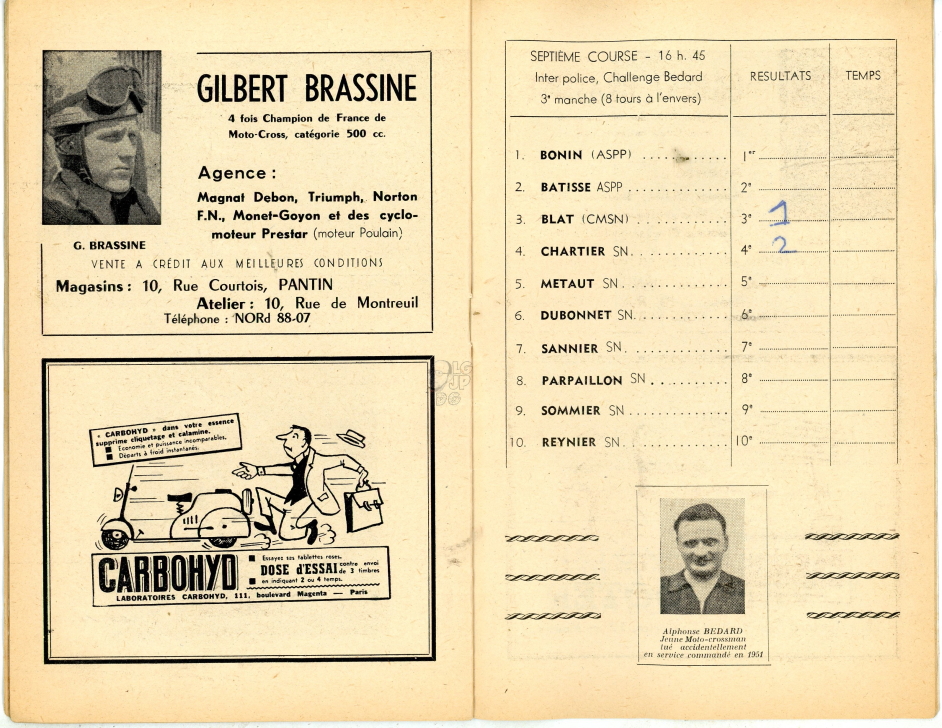 GILBERT BRASSINE
4 fois Champion de France de
Moto-Cross, catégorie 500 cc.
Agence :
Magnat Debon, Triumph, Norton
F.N., Monet-Goyon et des cyclo-
moteur Prestar (moteur Poulain)
G. BRASSINE
VENTE A CRÉDIT AUX MEILLEURES CONDITIONS
Magasins : 10, Rue Courtois, PANTIN
Atelier : 10, Rue de Montreuil
Téléphone : NORd 88-07
« CARBOHYD » dans votre essence
supprime cliquetage et calamine.
■ Economie et puissance incomparables.
■ Départs à froid instantanés.
CARBOHYD
■ Essayez ses tablettes roses.
DOSE d'ESSAI contre envoi de 3 timbres
■ en indiquant 2 ou 4 temps.
LABORATOIRES CARBOHYD, 111, boulevard Magenta — Paris
SEPTIÈME COURSE - 16 h. 45
Inter police, Challenge Bedard
3e manche (8 tours à l'envers)
RESULTATS
TEMPS
1. BONIN (ASPP) .......... 1er
2. BATISSE ASPP .......... 2e
3. BLAT (CMSN) .......... 3e 1
4. CHARTIER SN. .......... 4e 2
5. METAUT SN. .......... 5e
6. DUBONNET SN. .......... 6e
7. SANNIER SN. .......... 7e
8. PARPAILLON SN .......... 8e
9. SOMMIER SN .......... 9e
10. REYNIER SN. .......... 10e
Alphonse BEDARD
Jeune Moto-crossman
tué accidentellement
en service commandé en 1951